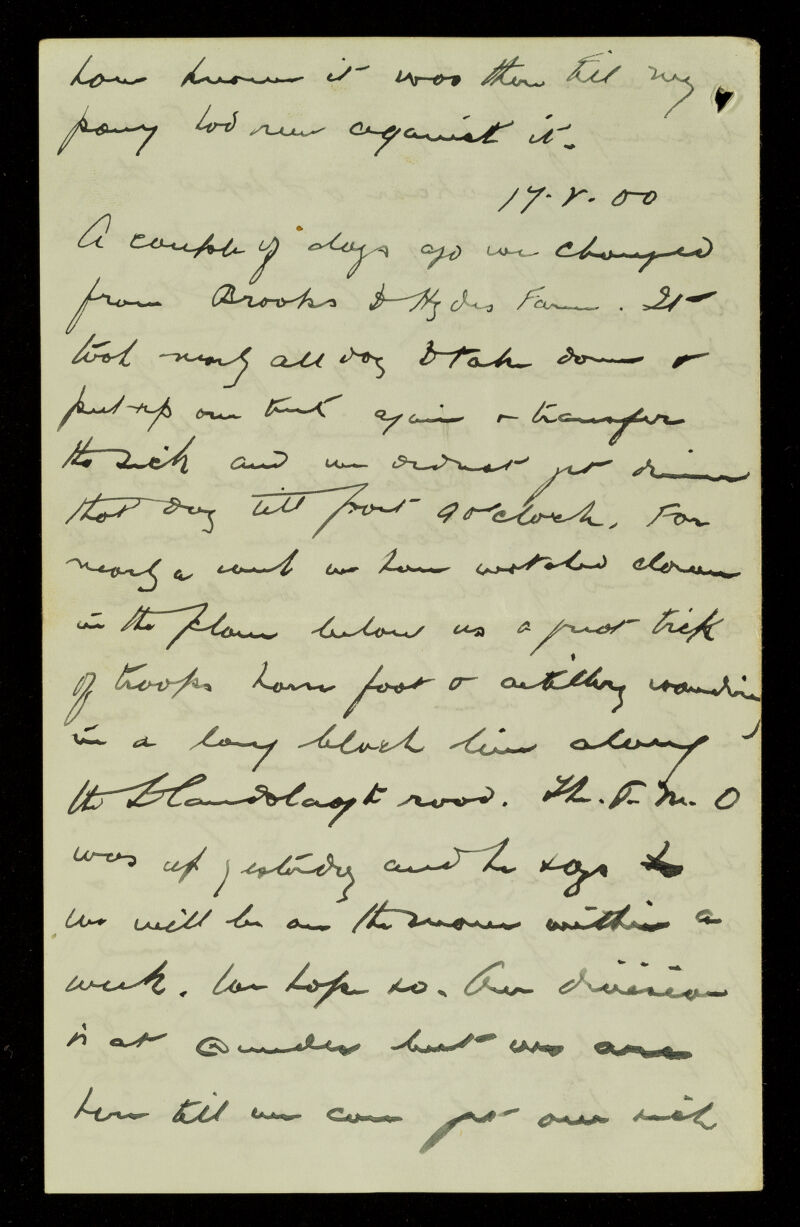 have known it was there till my
pony had run against it.
17. V. 00
A couple of days ago we changed
from Brooks to Hydes Farm. It
took nearly all day to take down &
put up our tent again & transfer
the sick and we didnt get dinner
that day till past 9 o'clock. For
nearly a week we have watched down
in the plain below us a great trek
of troops horse foot & artillery wandering
in a long black line along
the Elandslaagte road. The P. M. O
was up yesterday and he says
we will be on the move within a
week. We hope so. Our division
is at Sundex but we are
here till we can get our sick